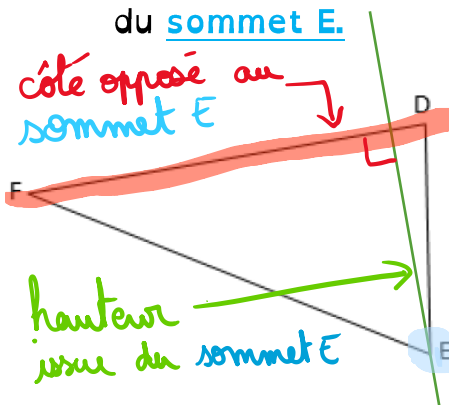 du sommet E.
côté opposé au
sommet E
D
F
hauteur
issue du sommet E
E